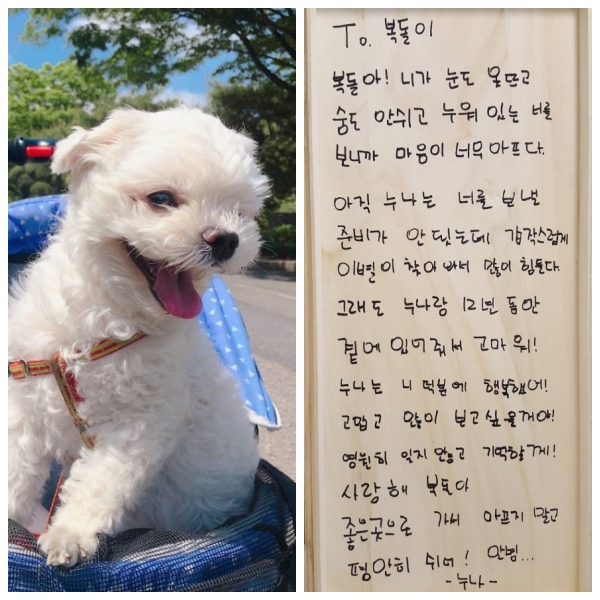 To. 복돌이
복돌아! 니가 눈도 못뜨고
숨도 안쉬고 누워 있는 너를
보니까 마음이 너무 아프다.
아직 누나는 너를 보낼
준비가 안됐는데 갑작스럽게
이별이 찾아와서 많이 힘들다.
그래도 누나랑 12년 동안
곁에 있어줘서 고마워!
누나는 니 덕분에 행복했어!
고맙고 많이 보고싶을거야!
영원히 잊지 않고 기억할게!
사랑해 복돌아
좋은곳으로 가서 아프지 말고
편안히 쉬어! 안녕...
-누나-